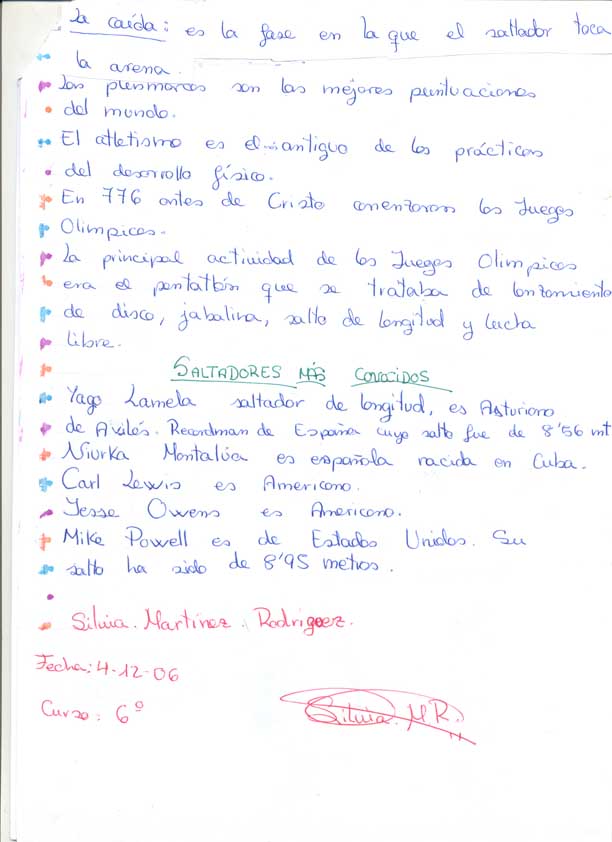 La caída: es la fase en la que el saltador toca
la arena.
Las plusmarcas son las mejores puntuaciones
del mundo.
El atletismo es el antiguo de los prácticas
del desarrollo físico.
En 776 antes de Cristo comenzaron los Juegos
Olimpicos.
La principal actividad de los Juegos Olimpicos
era el pentatlón que se trataba de lanzamiento
de disco, jabalina, salto de longitud y lucha
libre.
SALTADORES MÁS CONOCIDOS
Yago Lamela saltador de longitud, es Asturiano
de Avilés. Recordman de España cuyo salto fue de 8'56 mt
Niurka Montalva es española nacida en Cuba.
Carl Lewis es Americano.
Jesse Owens es Americano.
Mike Powell es de Estados Unidos. Su
salto ha sido de 8'95 metros.
Silvia. Martinez. Rodriguez.
Fecha: 4-12-06
Curso: 6º
Silvia. M R.